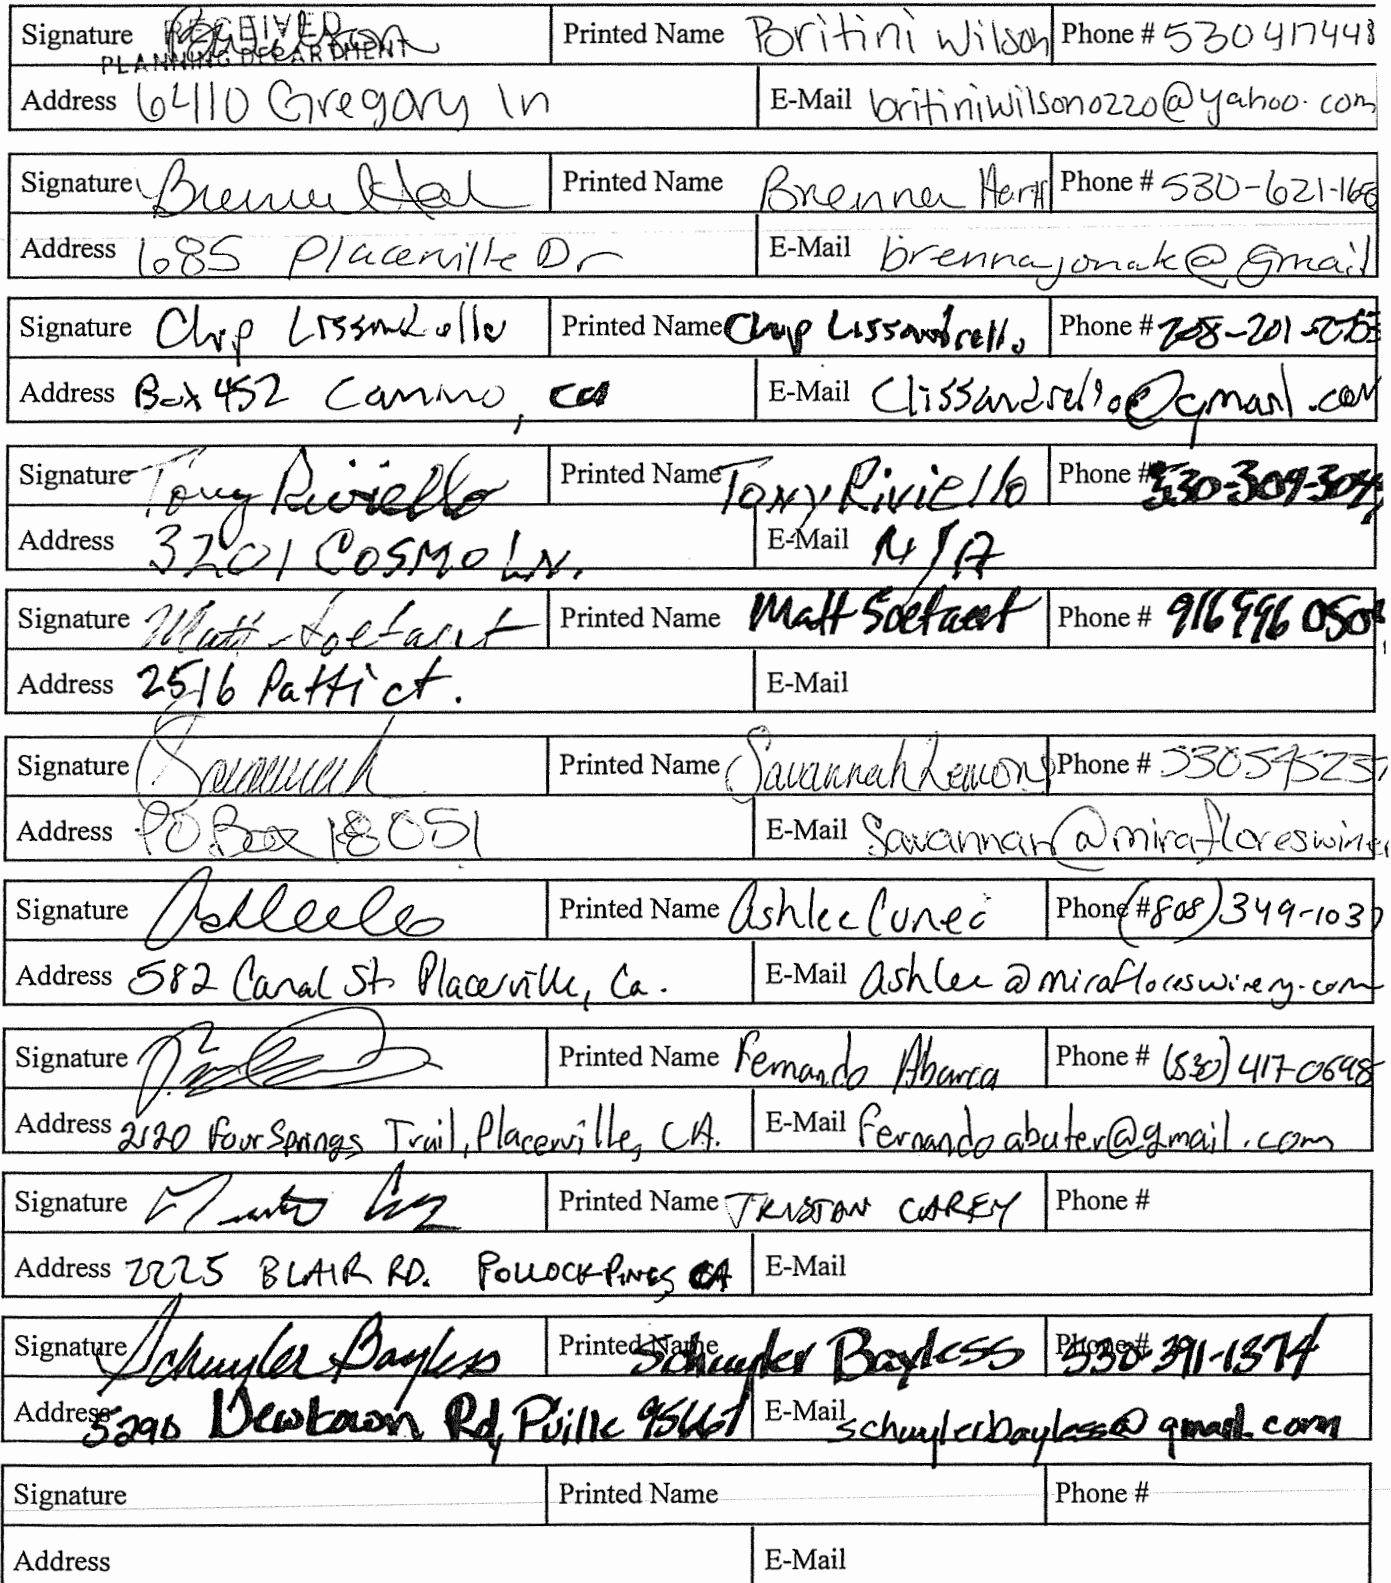 Signature RECEIVED Printed Name Britini Wilson Phone # 530417448
PLANNING DEPARTMENT
Address 6410 Gregory ln E-Mail britiniwilson0220@yahoo.com
Signature Printed Name Brenna Phone # 530-621-166
Address 685 Placerville Dr E-Mail brennajonak@gmail
Signature Chip Lissandrello Printed Name Chip Lissandrello Phone # 208-201-
Address Box 452 Camino, CA E-Mail Clissandrello@gmail.com
Signature Tony Riviello Printed Name Tony Riviello Phone # 530-309-304
Address 3201 COSMO LN. E-Mail N/A
Signature Matt Soetaert Printed Name Matt Soetaert Phone # 916 996 050
Address 2516 Patti ct. E-Mail
Signature Savannah Printed Name Savannah Lemons Phone # 530545237
Address PO Box 18051 E-Mail Savannah@mirafloreswiner
Signature Printed Name Ashlee Cuneo Phone # (808) 349-103
Address 582 Canal St. Placerville, Ca. E-Mail ashlee@mirafloreswinery.com
Signature Printed Name Fernando Abarca Phone # (530) 417-0698
Address 2120 Four Springs Trail, Placerville, CA. E-Mail fernandoabuter@gmail.com
Signature Printed Name TRISTAN CAREY Phone #
Address 2225 BLAIR RD. POLLOCK PINES CA E-Mail
Signature Schuyler Bayless Printed Name Schuyler Bayless Phone # 530-391-1374
Address 5290 Newtown Rd, Pville 95667 E-Mail schuylerbayless@gmail.com
Signature Printed Name Phone #
Address E-Mail